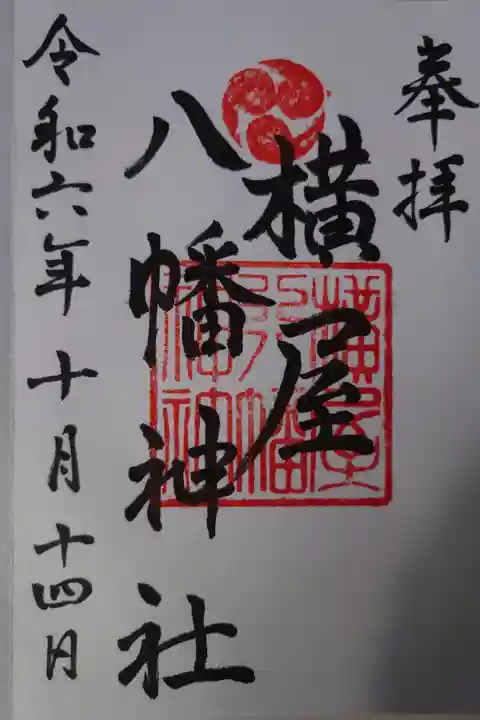 奉拝
横屋
八幡神社
令和六年十月十四日
横屋
八幡
神社